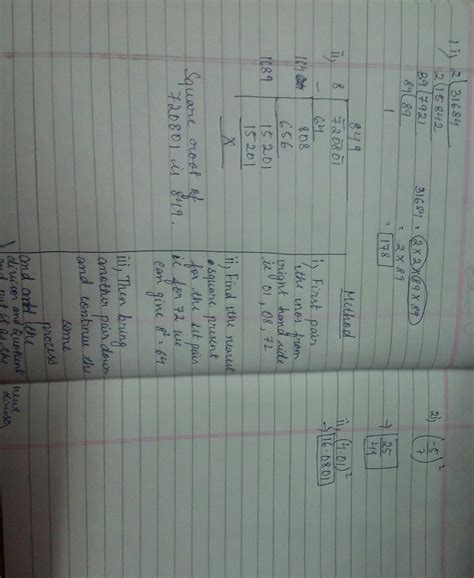 1) i) 2 | 31684
2 | 15842
89 | 7921
89 | 89
1
31684 = 2×2×89×89
= 2 × 89
= 178
ii, 849
8 | 720801
- 64
164 | 808
656
1689 | 15201
15201
X
Square root of
720801 is 849.
Method
i, First pair
the nos from
right hand side
ie 01, 08, 72
ii, Find the nearest
square present
for the 1st pair
ie for 72 we
can give 8² = 64
iii, Then bring
another pair down
and continue the
same
process
and add the
divisor and quotient
2i, (-5/7)²
→ 25/49
ii, (4.01)²
→ 16.0801